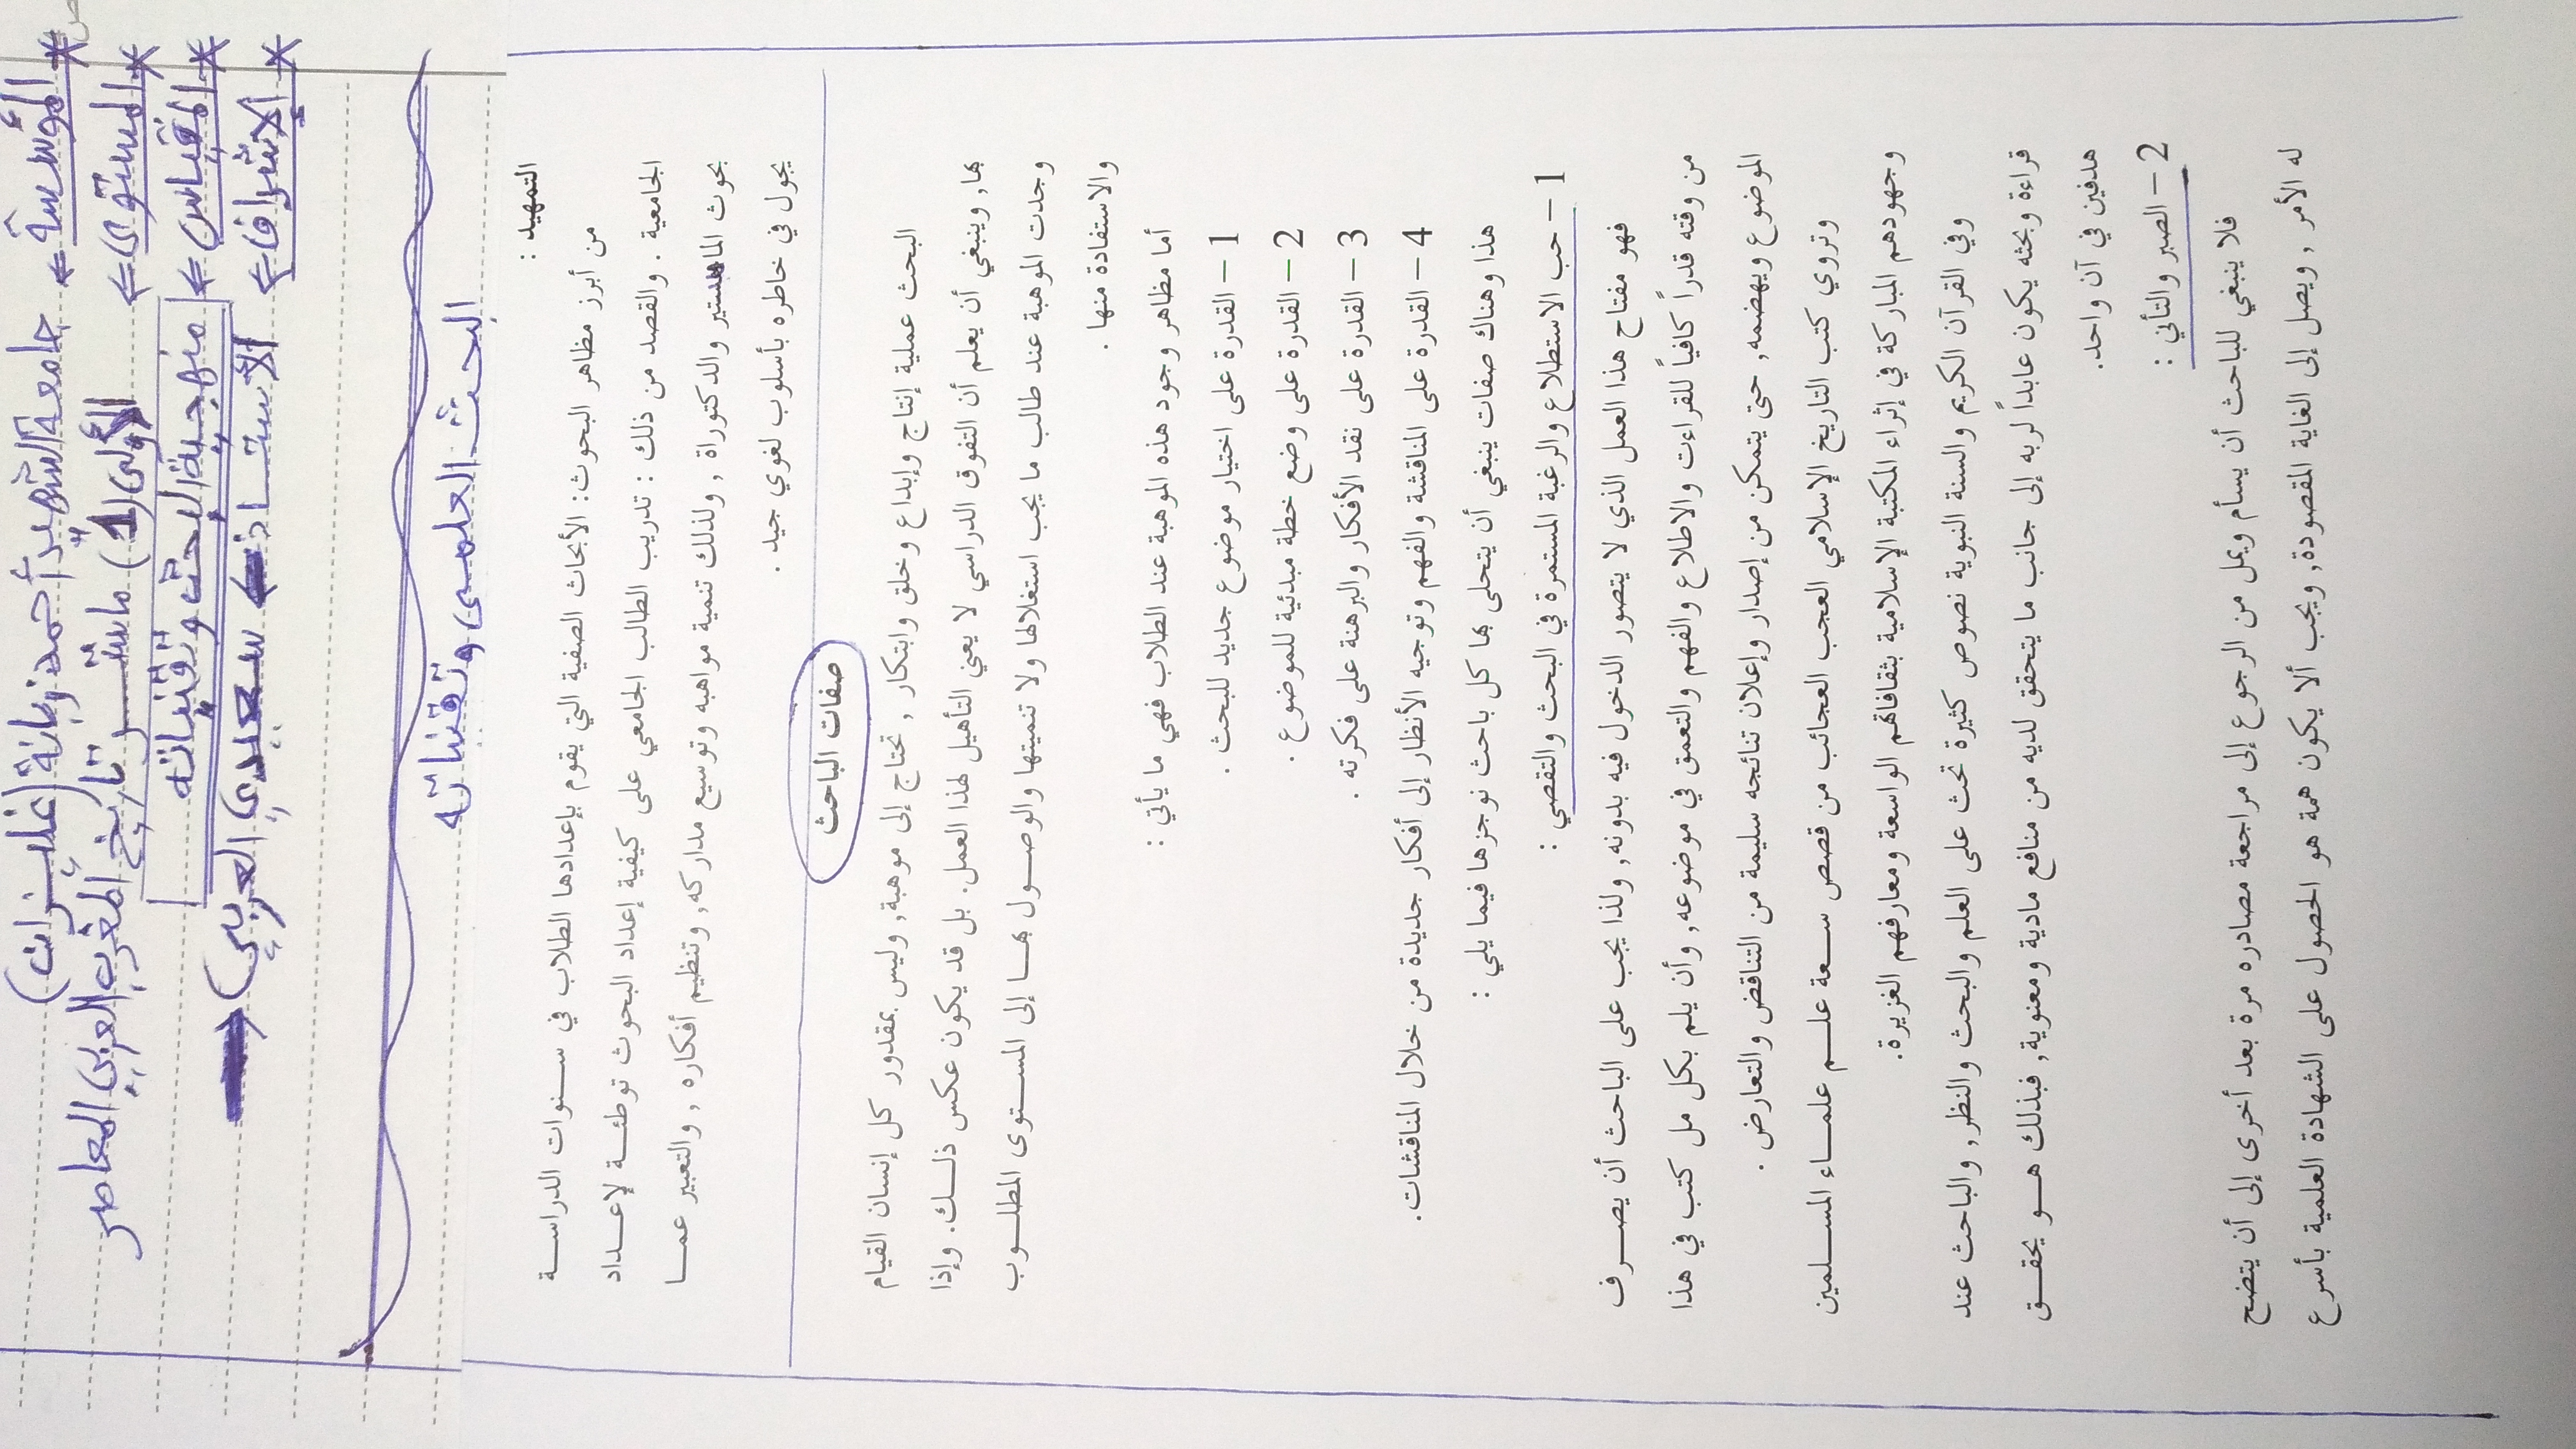 * المؤسسة ← جامعة الشهيد أحمد زبانة (غليزان)
* المستوى ← الأولى (1) ماستر تاريخ المغرب العربي المعاصر
* المقياس ← منهجية البحث وتقنياته
* الإشراف ← الأستاذ ← سعيدي العربي
البحث العلمي وتقنياته
التمهيد :
من أبرز مظاهر البحوث: الأبحاث الصفية التي يقوم بإعدادها الطلاب في سنوات الدراسة
الجامعية . والقصد من ذلك : تدريب الطالب الجامعي على كيفية إعداد البحوث توطئة لإعداد
بحوث الماجستير والدكتوراة , ولذلك تنمية مواهبه وتوسيع مداركه, وتنظيم أفكاره , والتعبير عما
يجول في خاطره بأسلوب لغوي جيد .
صفات الباحث
البحث عملية إنتاج وإبداع وخلق وابتكار , تحتاج إلى موهبة, وليس بمقدور كل إنسان القيام
بها, وينبغي أن يعلم أن التفوق الدراسي لا يعني التأهيل لهذا العمل. بل قد يكون عكس ذلك. وإذا
وجدت الموهبة عند طالب ما يجب استغلالها ولا تنميتها والوصول بها إلى المستوى المطلوب
والاستفادة منها .
أما مظاهر وجود هذه الموهبة عند الطلاب فهي ما يأتي :
1 – القدرة على اختيار موضوع جديد للبحث .
2 – القدرة على وضع خطة مبدئية للموضوع .
3 – القدرة على نقد الأفكار والبرهنة على فكرته .
4 – القدرة على المناقشة والفهم وتوجيه الأنظار إلى أفكار جديدة من خلال المناقشات.
هذا وهناك صفات ينبغي أن يتحلى بها كل باحث نوجزها فيما يلي :
1 – حب الاستطلاع والرغبة المستمرة في البحث والتقصي :
فهو مفتاح هذا العمل الذي لا يتصور الدخول فيه بدونه, ولذا يجب على الباحث أن يصرف
من وقته قدراً كافياً للقراءت والاطلاع والفهم والتعمق في موضوعه, وأن يلم بكل مل كتب في هذا
الموضوع ويهضمه, حتى يتمكن من إصدار وإعلان تنائجه سليمة من التناقض والتعارض .
وتروي كتب التاريخ الإسلامي العجب العجائب من قصص سعة علم علماء المسلمين
وجهودهم المباركة في إثراء المكتبة الإسلامية بثقافاتهم الواسعة ومعارفهم الغزيرة.
وفي القرآن الكريم والسنة النبوية نصوص كثيرة تحث على العلم والبحث والنظر, والباحث عند
قراءة وبحثه يكون عابداً لربه إلى جانب ما يتحقق لديه من منافع مادية ومعنوية, فبذلك هو يحقق
هدفين في آن واحد.
2 – الصبر والتأني :
فلا ينبغي للباحث أن يسأم ويمل من الرجوع إلى مراجعة مصادره مرة بعد أخرى إلى أن يتضح
له الأمر , ويصل إلى الغاية المقصودة, ويجب ألا يكون همة هو الحصول على الشهادة العلمية بأسرع